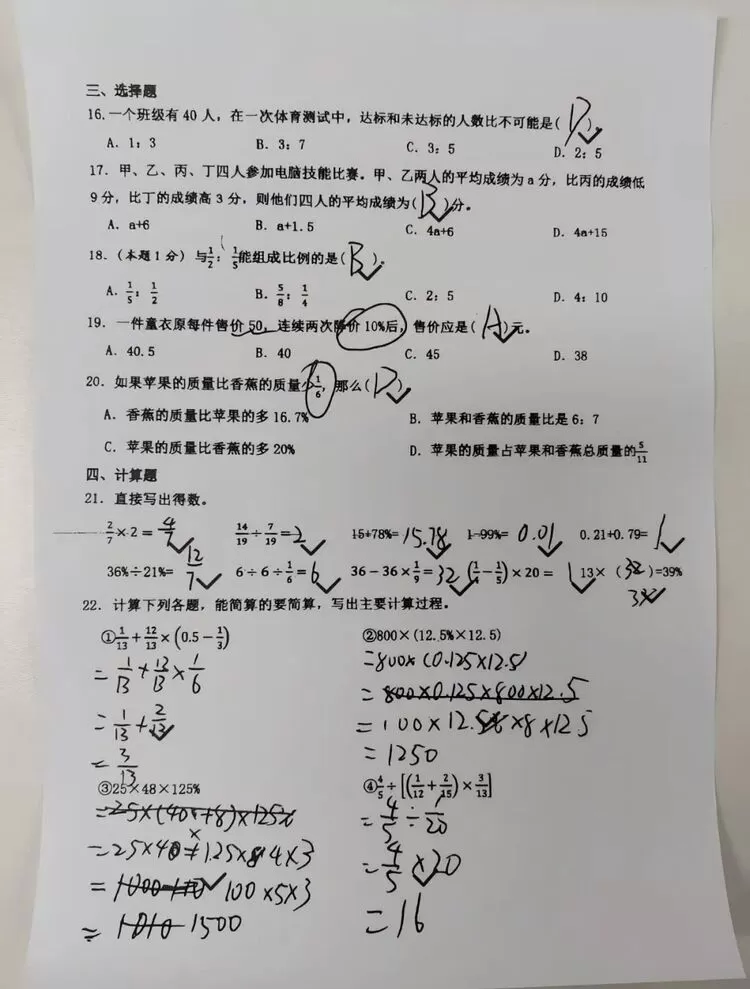 三、选择题
16.一个班级有 40 人，在一次体育测试中，达标和未达标的人数比不可能是( D )。
A. 1：3 B. 3：7 C. 3：5 D. 2：5
17. 甲、乙、丙、丁四人参加电脑技能比赛。甲、乙两人的平均成绩为 a 分，比丙的成绩低
9 分，比丁的成绩高 3 分，则他们四人的平均成绩为( B )分。
A. a+6 B. a+1.5 C. 4a+6 D. 4a+15
18.（本题 1 分）与1/2：1/5能组成比例的是( B )。
A. 1/5：1/2 B. 5/8：1/4 C. 2：5 D. 4：10
19. 一件童衣原每件售价 50，连续两次降价 10%后，售价应是( A )元。
A. 40.5 B. 40 C. 45 D. 38
20. 如果苹果的质量比香蕉的质量少1/6，那么( D )
A. 香蕉的质量比苹果的多 16.7% B. 苹果和香蕉的质量比是 6：7
C. 苹果的质量比香蕉的多 20% D. 苹果的质量占苹果和香蕉总质量的5/11
四、计算题
21. 直接写出得数。
2/7×2= 4/7 14/19÷7/19= 2 15+78%= 15.78 1-99%= 0.01 0.21+0.79= 1
36%÷21%= 12/7 6÷6÷1/6= 6 36-36×1/9= 32 (1/4-1/5)×20= 1 13×( )=39%
3%
22. 计算下列各题，能简算的要简算，写出主要计算过程。
①1/13+12/13×(0.5-1/3) ②800×(12.5%×12.5)
=1/13+12/13×1/6 =800×(0.125×12.5)
=800×0.125×800×12.5
=1/13+2/13 =100×12.5
=3/13 =1250
③25×48×125% ④4/5÷[(1/12+2/15)×3/13]
=25×(40+8)×125% =4/5÷1/20
=25×4×1.25×4×3 =4/5×20
=100×5×3
=1010 1500 =16